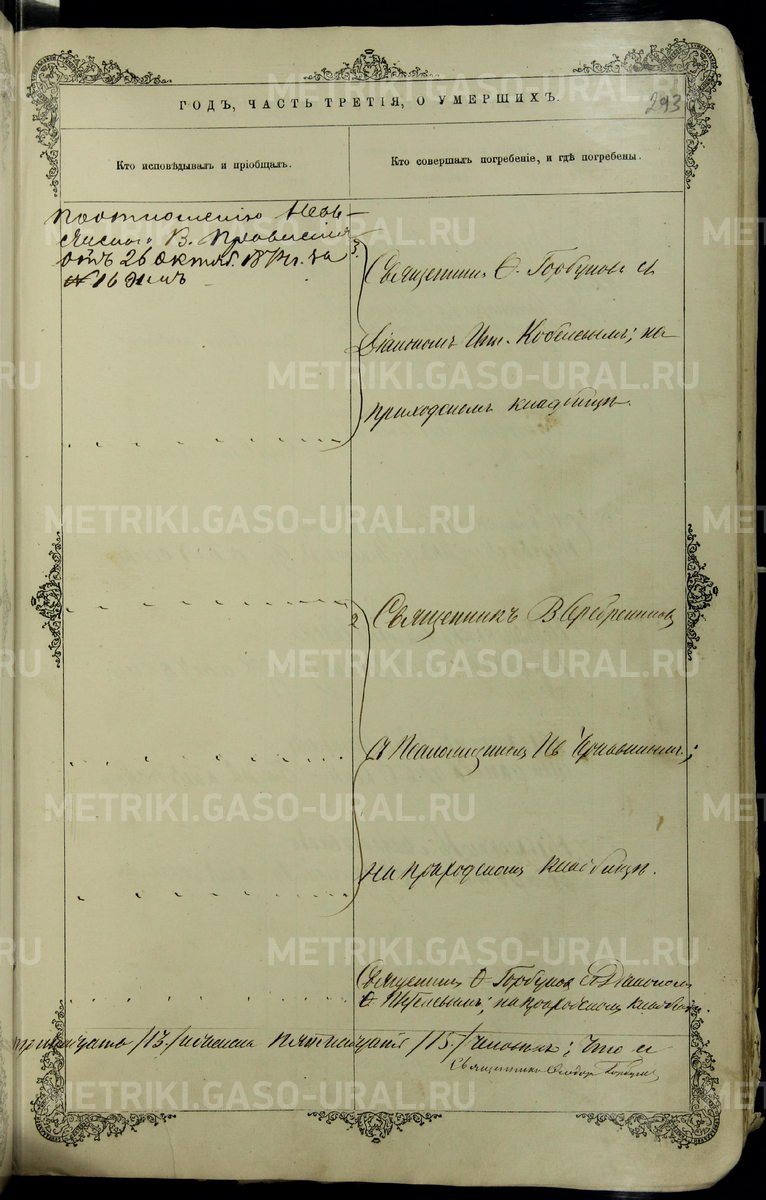 293
ГОДЪ, ЧАСТЬ ТРЕТІЯ, О УМЕРШИХЪ.
Кто исповѣдывалъ и пріобщалъ.
Кто совершалъ погребеніе, и гдѣ погребены.
по отношенію
В. Правленія
отъ 26 Октяб. за
№ 16
Священникъ Ѳ. Горбуновъ съ
Діакономъ Кобелевымъ; на
приходскомъ кладбищѣ.
2
Священникъ В Серебренниковъ
съ Псаломщикомъ
на приходскомъ кладбищѣ.
Священникъ Ѳ Горбуновъ съ Діакономъ
на приходскомъ кладбищѣ.
/13/ женска пятнадцать /15/ человѣкъ; Что и
Священникъ Ѳеодоръ Горбуновъ
METRIKI.GASO-URAL.RU